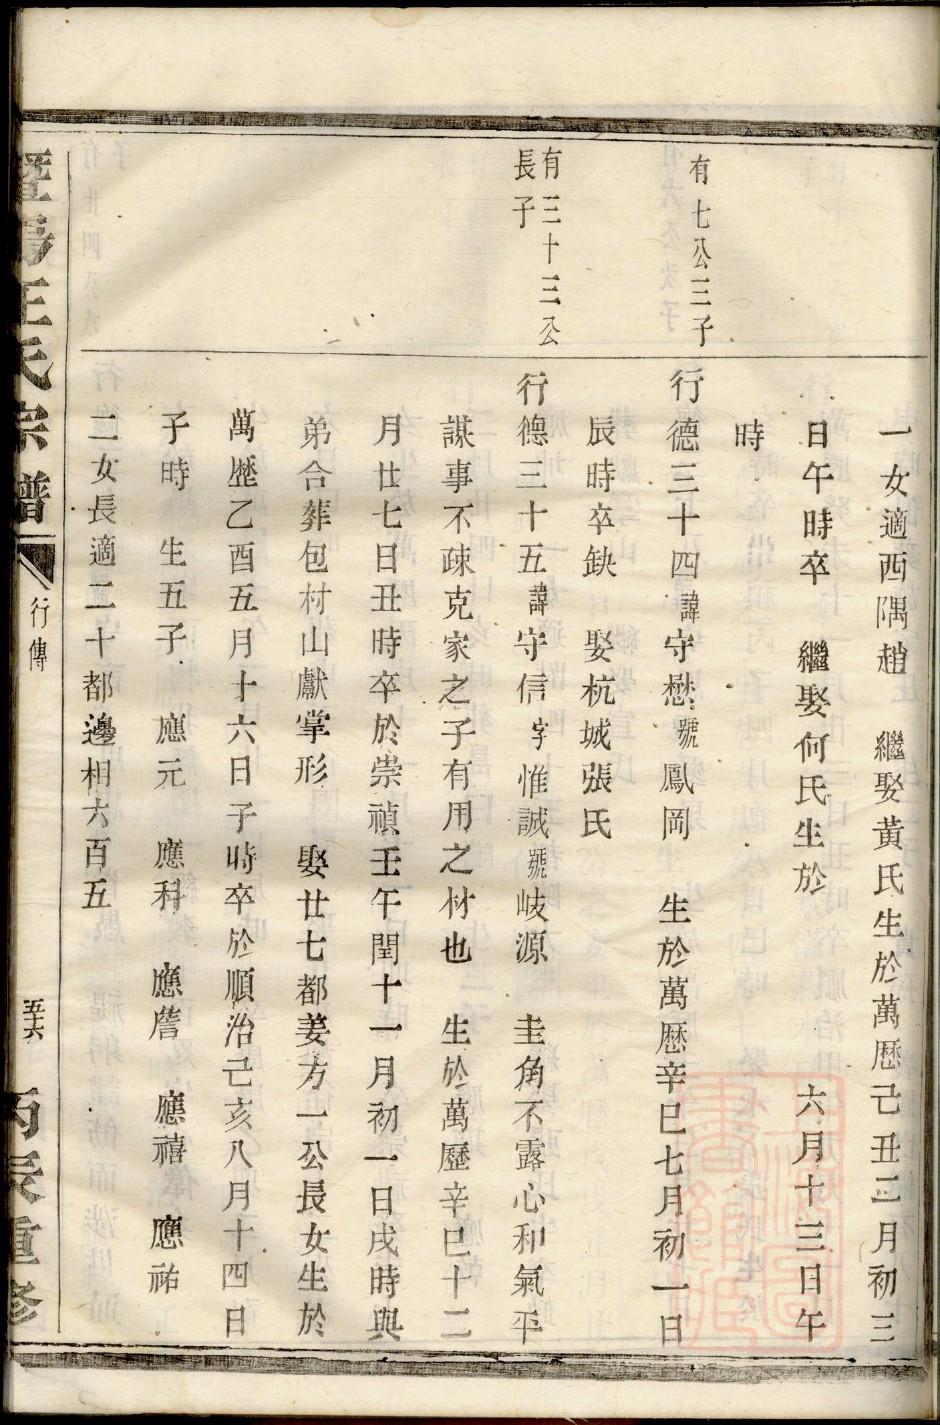 一女適西隅趙　繼娶黃氏生於萬曆己丑二月初三
日午時卒　繼娶何氏生於　六月十三日午
時
有七公三子
行德三十四諱守懋號鳳岡　生於萬曆辛巳七月初一日
辰時卒缺　娶杭城張氏
有三十三公
長子
行德三十五諱守信字惟誠號岐源　圭角不露心和氣平
謀事不疎克家之子有用之材也　生於萬歷辛巳十二
月廿七日丑時卒於崇禎壬午閏十一月初一日戌時與
弟合葬包村山獻掌形　娶廿七都姜方一公長女生於
萬歷乙酉五月十六日子時卒於順治己亥八月十四日
子時　生五子　應元　應科　應詹　應禧　應祐
二女長適二十都邊相六百五
暨陽王氏宗譜
行傳
五六
丙辰重修